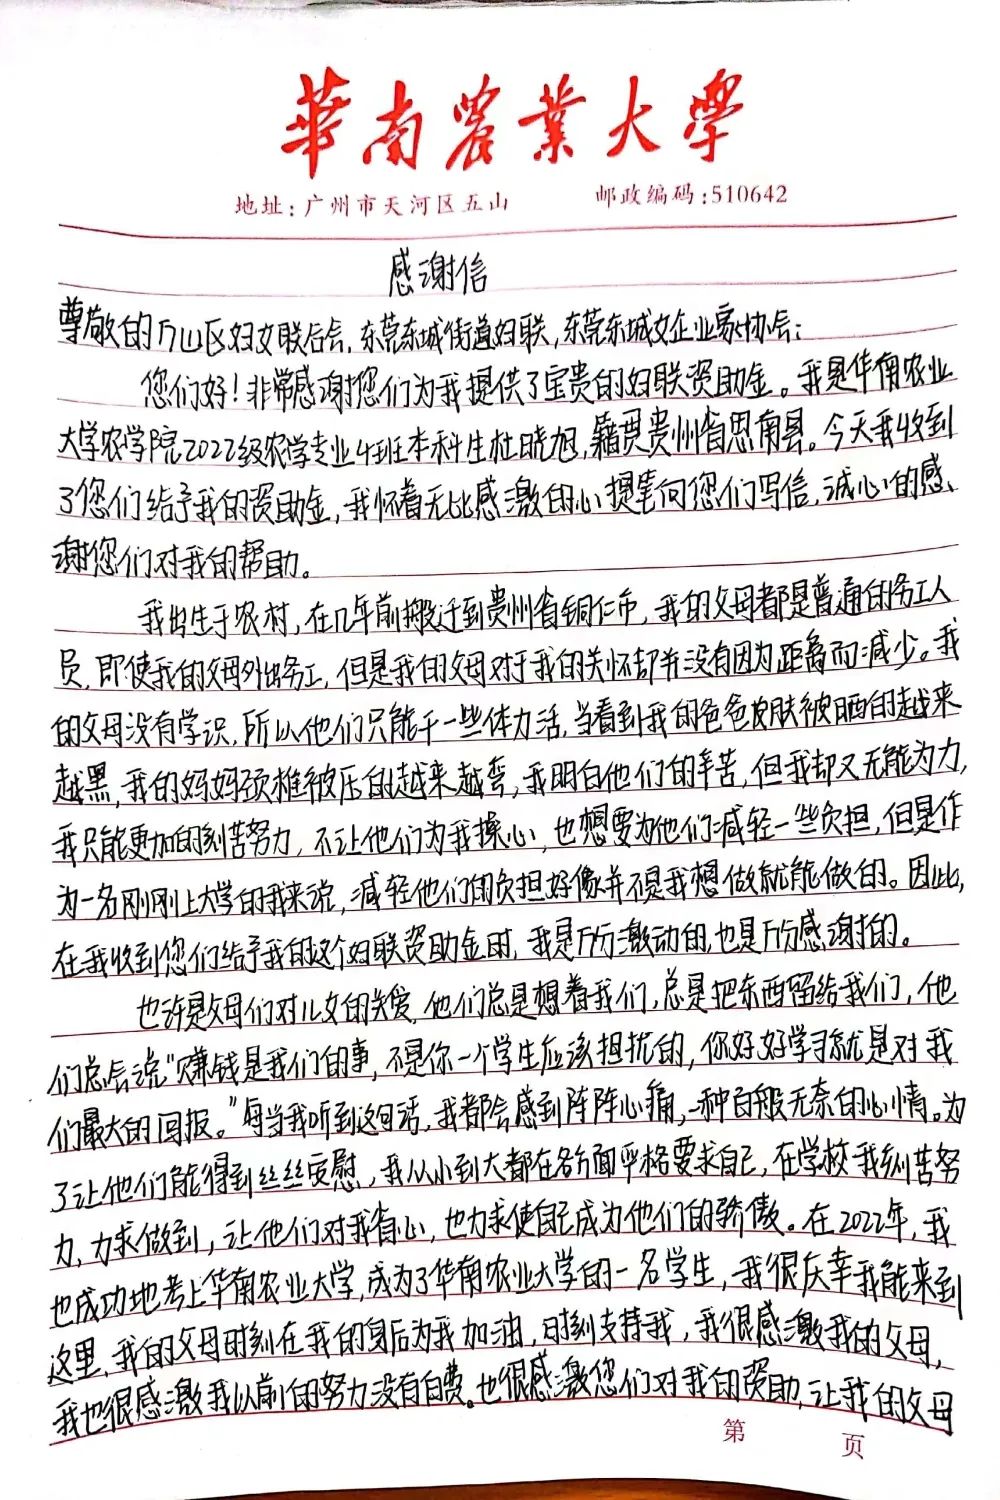 華南農業大學
地址:广州市天河区五山 邮政编码:510642
感谢信
尊敬的万山区妇女联合会,东莞东城街道妇联,东莞东城女企业家协会:
您们好!非常感谢您们为我提供了宝贵的妇联资助金。我是华南农业
大学农学院2022级农学专业4班本科生杜晓旭,籍贯贵州省思南县。今天我收到
了您们给予我的资助金,我怀着无比感激的心提笔向您们写信,诚心的感
谢您们对我的帮助。
我出生于农村,在几年前搬迁到贵州省铜仁市,我的父母都是普通的务工人
员,即使我的父母外出务工,但是我的父母对于我的关怀却并没有因为距离而减少。我
的父母没有学识,所以他们只能干一些体力活,当看到我的爸爸皮肤被晒的越来
越黑,我的妈妈颈椎被压的越来越弯,我明白他们的辛苦,但我却又无能为力,
我只能更加的刻苦努力,不让他们为我操心,也想要为他们减轻一些负担,但是作
为一名刚刚上大学的我来说,减轻他们的负担好像并不是我想做就能做的。因此,
在我收到您们给予我的这个妇联资助金时,我是万分激动的,也是万分感谢的。
也许是父母们对儿女的关爱,他们总是想着我们,总是把东西留给我们,他
们总会说"赚钱是我们的事,不是你一个学生应该担扰的,你好好学习就是对我
们最大的回报。"每当我听到这句话,我都会感到阵阵心痛,一种百般无奈的心情。为
了让他们能得到丝丝安慰,我从小到大都在各方面严格要求自己,在学校我刻苦努
力,力求做到,让他们对我省心,也力求使自己成为他们的骄傲。在2022年,我
也成功地考上华南农业大学,成为了华南农业大学的一名学生,我很庆幸我能来到
这里,我的父母时刻在我的身后为我加油,时刻支持我,我很感激我的父母,
我也很感激我以前的努力没有白费。也很感激您们对我的资助,让我的父母
第 页